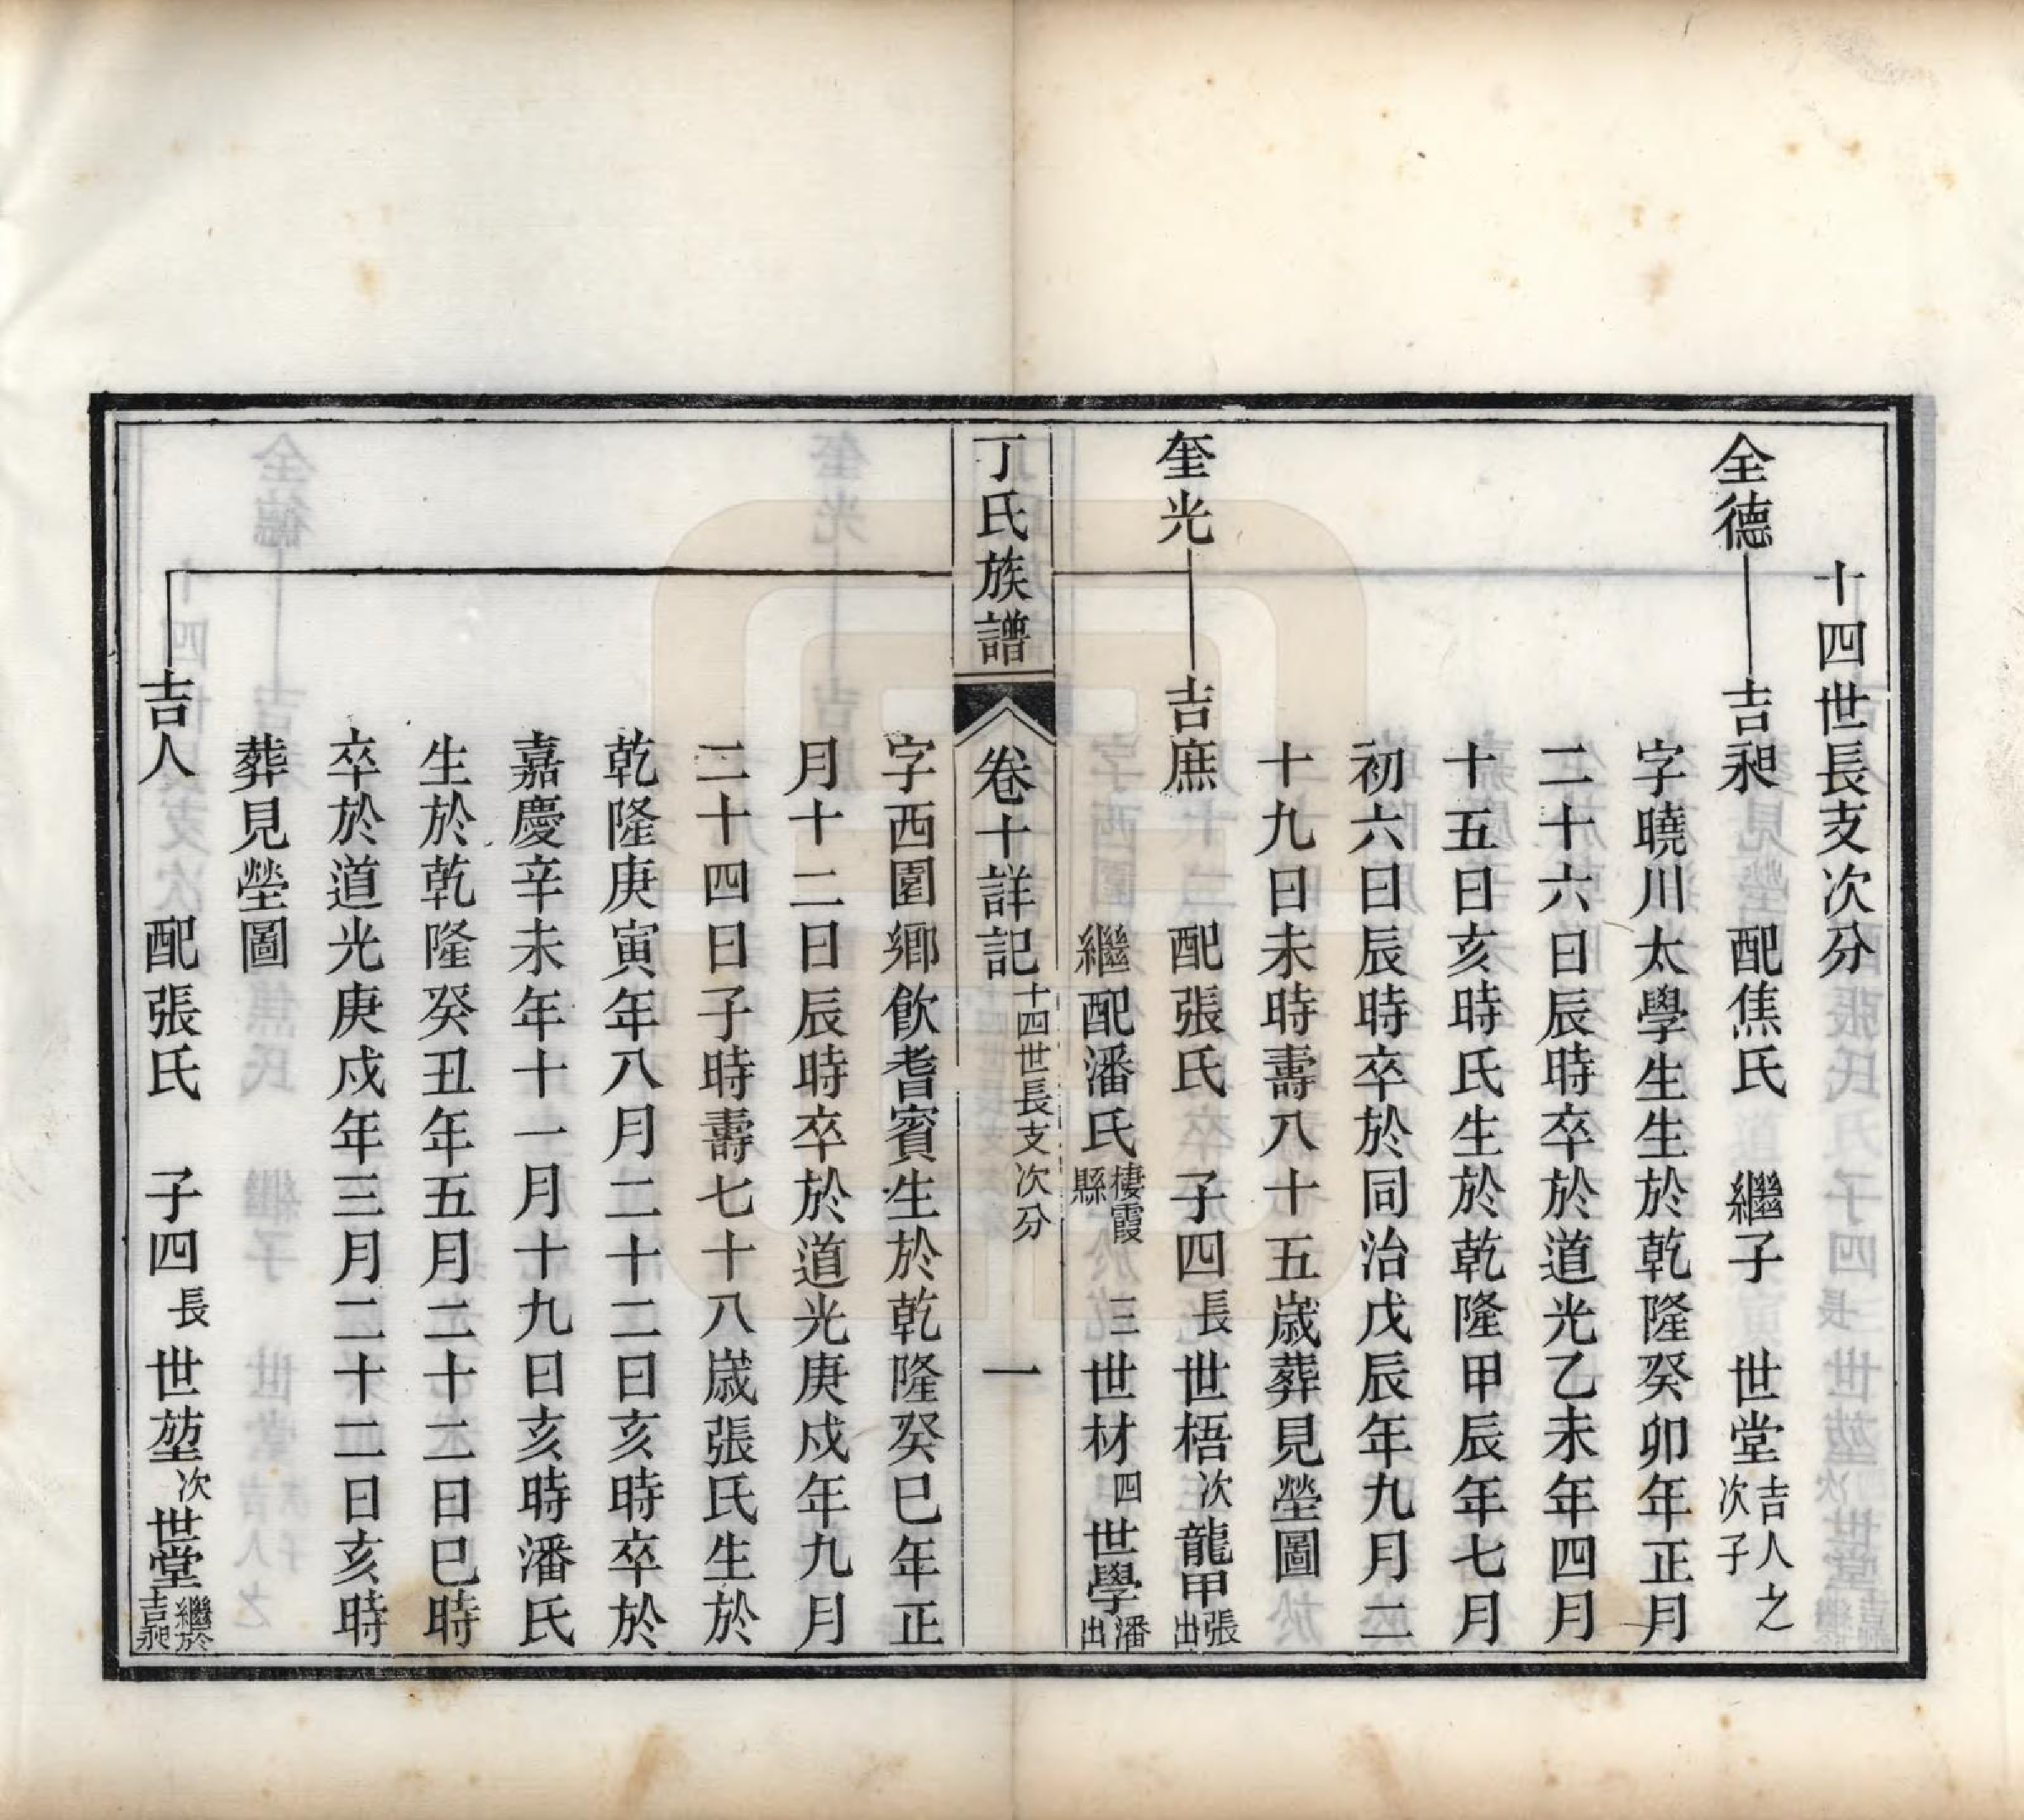 十四世長支次分
全德 吉昶 配焦氏 繼子 世堂 吉人之次子
字曉川太學生生於乾隆癸卯年正月
二十六日辰時卒於道光乙未年四月
十五日亥時氏生於乾隆甲辰年七月
初六日辰時卒於同治戊辰年九月二
十九日未時壽八十五歲葬見塋圖
奎光 吉庶 配張氏 子四 長世梧 次龍甲 張出
繼配潘氏 棲霞縣 三世材 四世學 潘出
丁氏族譜 卷十詳記 十四世長支次分 一
字西園鄉飲耆賓生於乾隆癸巳年正
月十二日辰時卒於道光庚戌年九月
二十四日子時壽七十八歲張氏生於
乾隆庚寅年八月二十二日亥時卒於
嘉慶辛未年十一月十九日亥時潘氏
生於乾隆癸丑年五月二十二日巳時
卒於道光庚戌年三月二十二日亥時
葬見塋圖
吉人 配張氏 子四 長世堃 次世堂 繼於吉昶